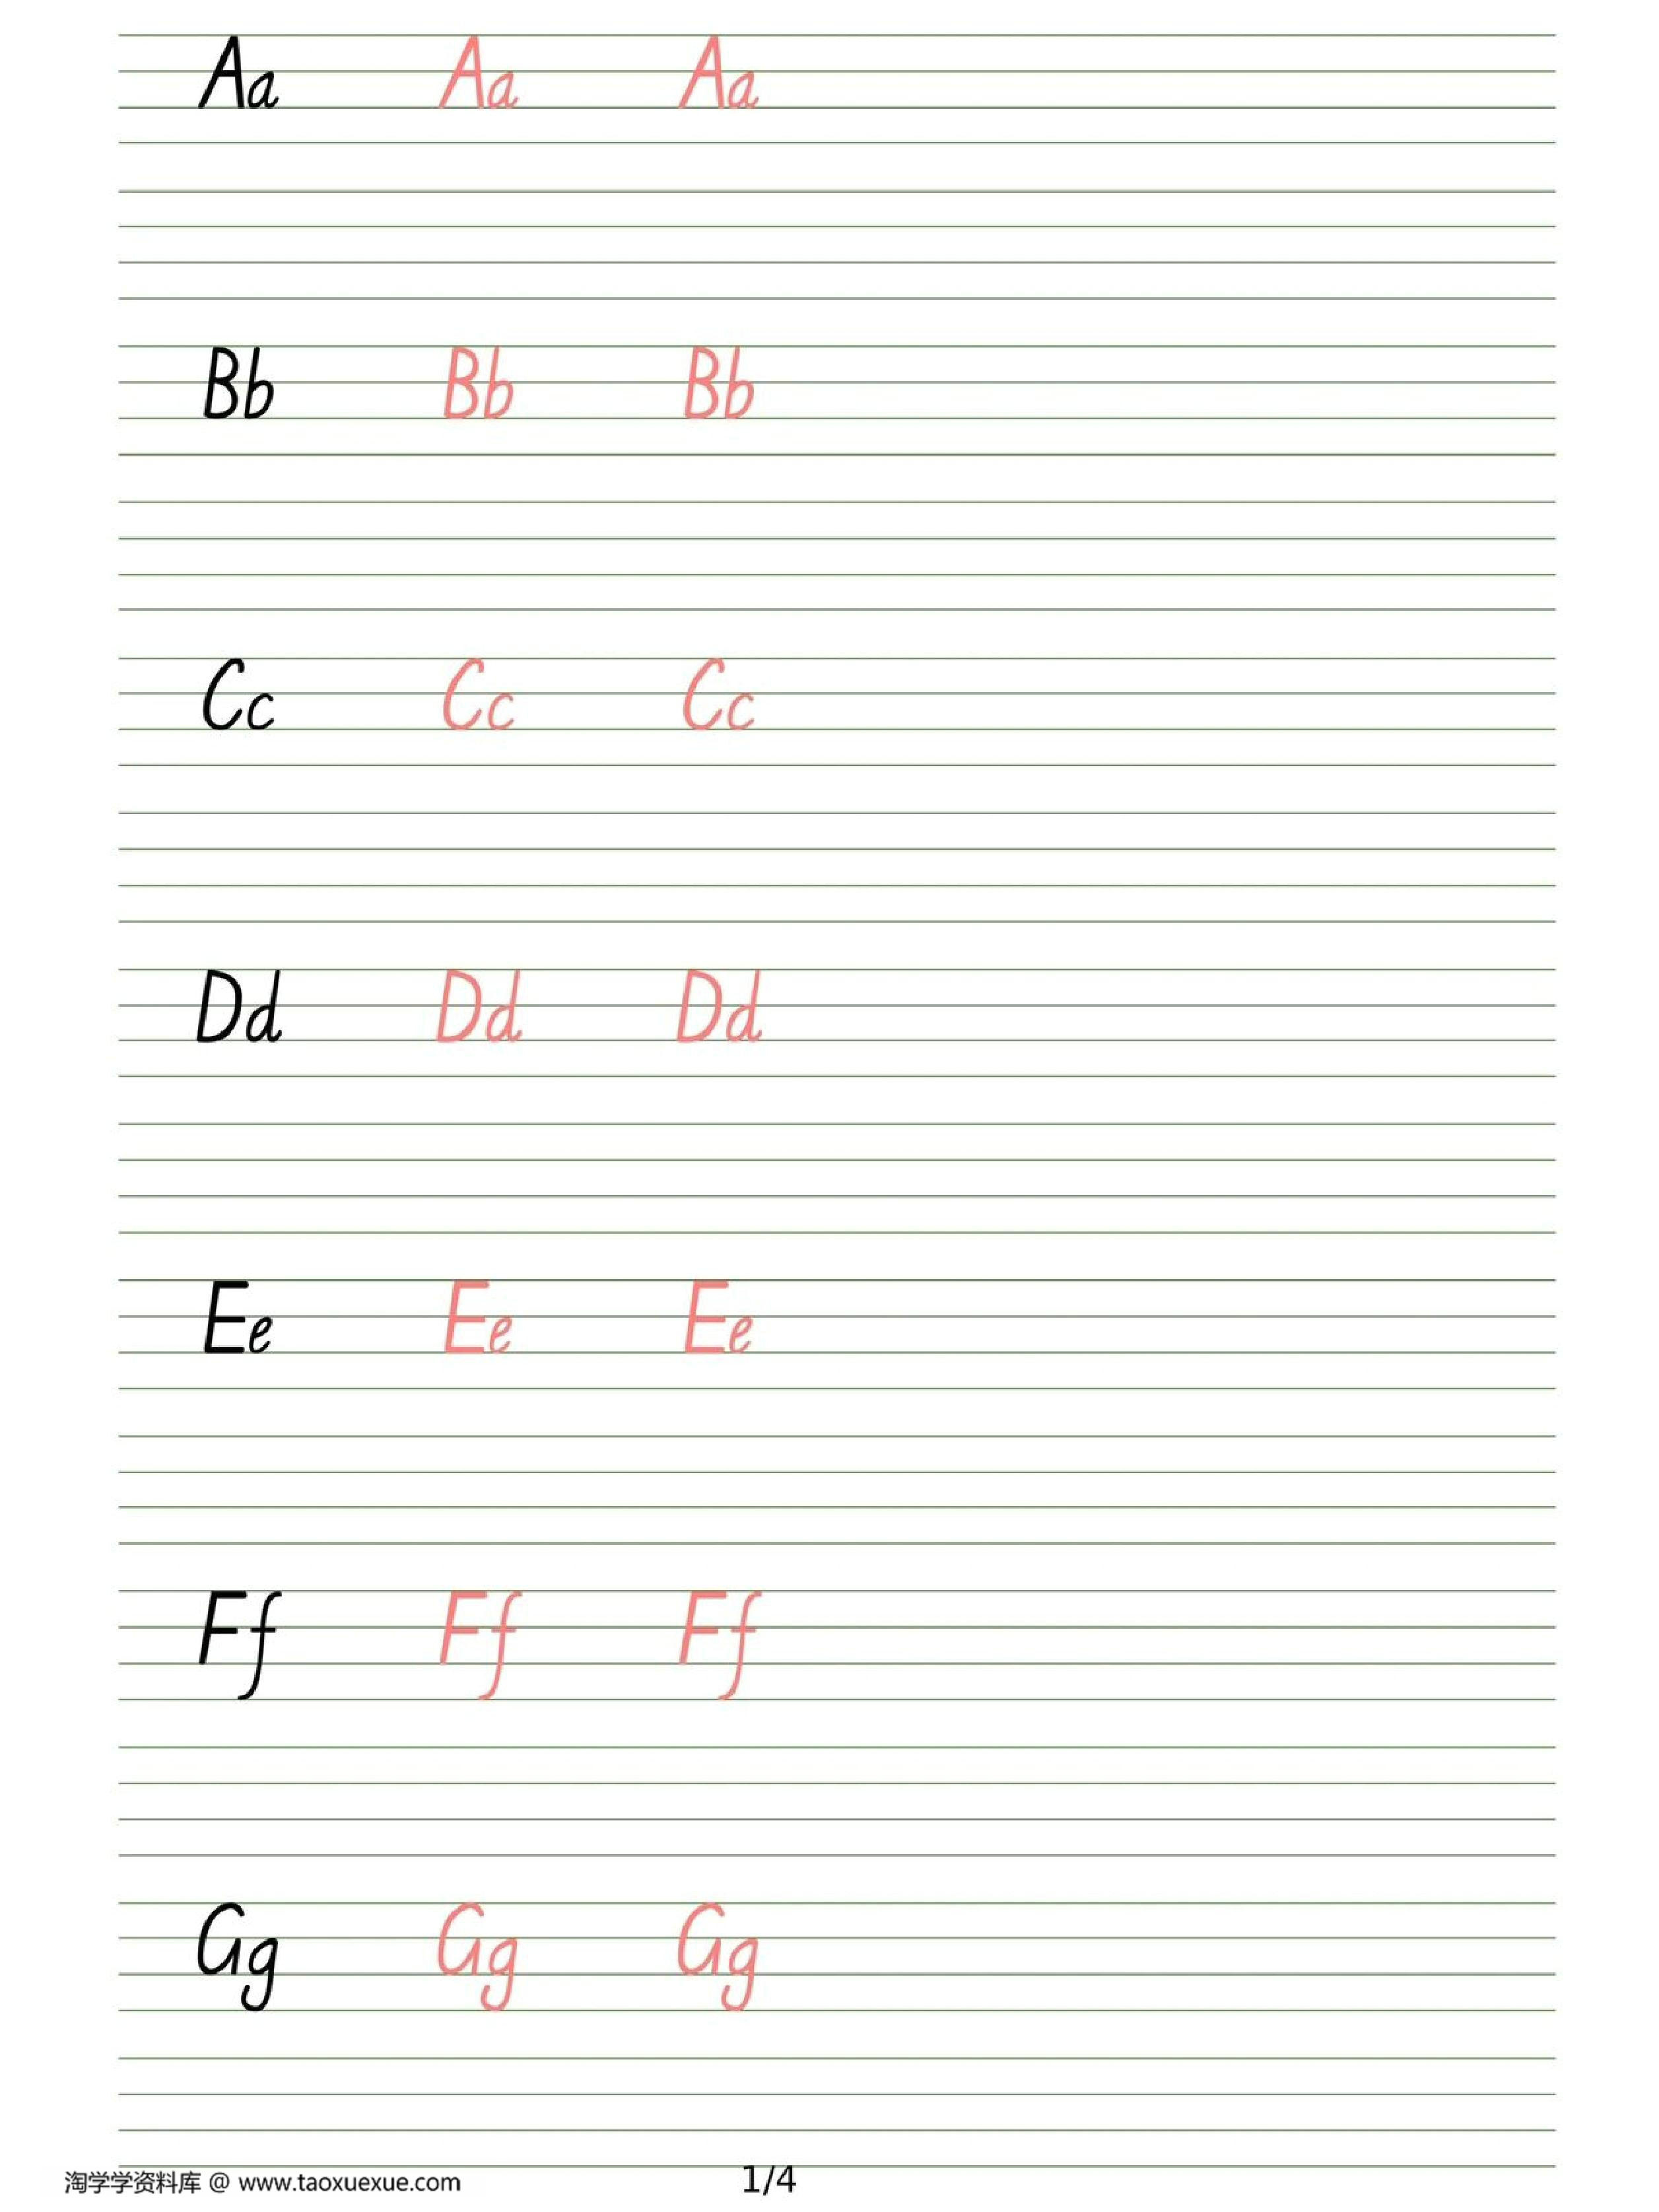 Aa Aa Aa
Bb Bb Bb
Cc Cc Cc
Dd Dd Dd
Ee Ee Ee
Ff Ff Ff
Gg Gg Gg
淘学学资料库 @ www.taoxuexue.com 1/4